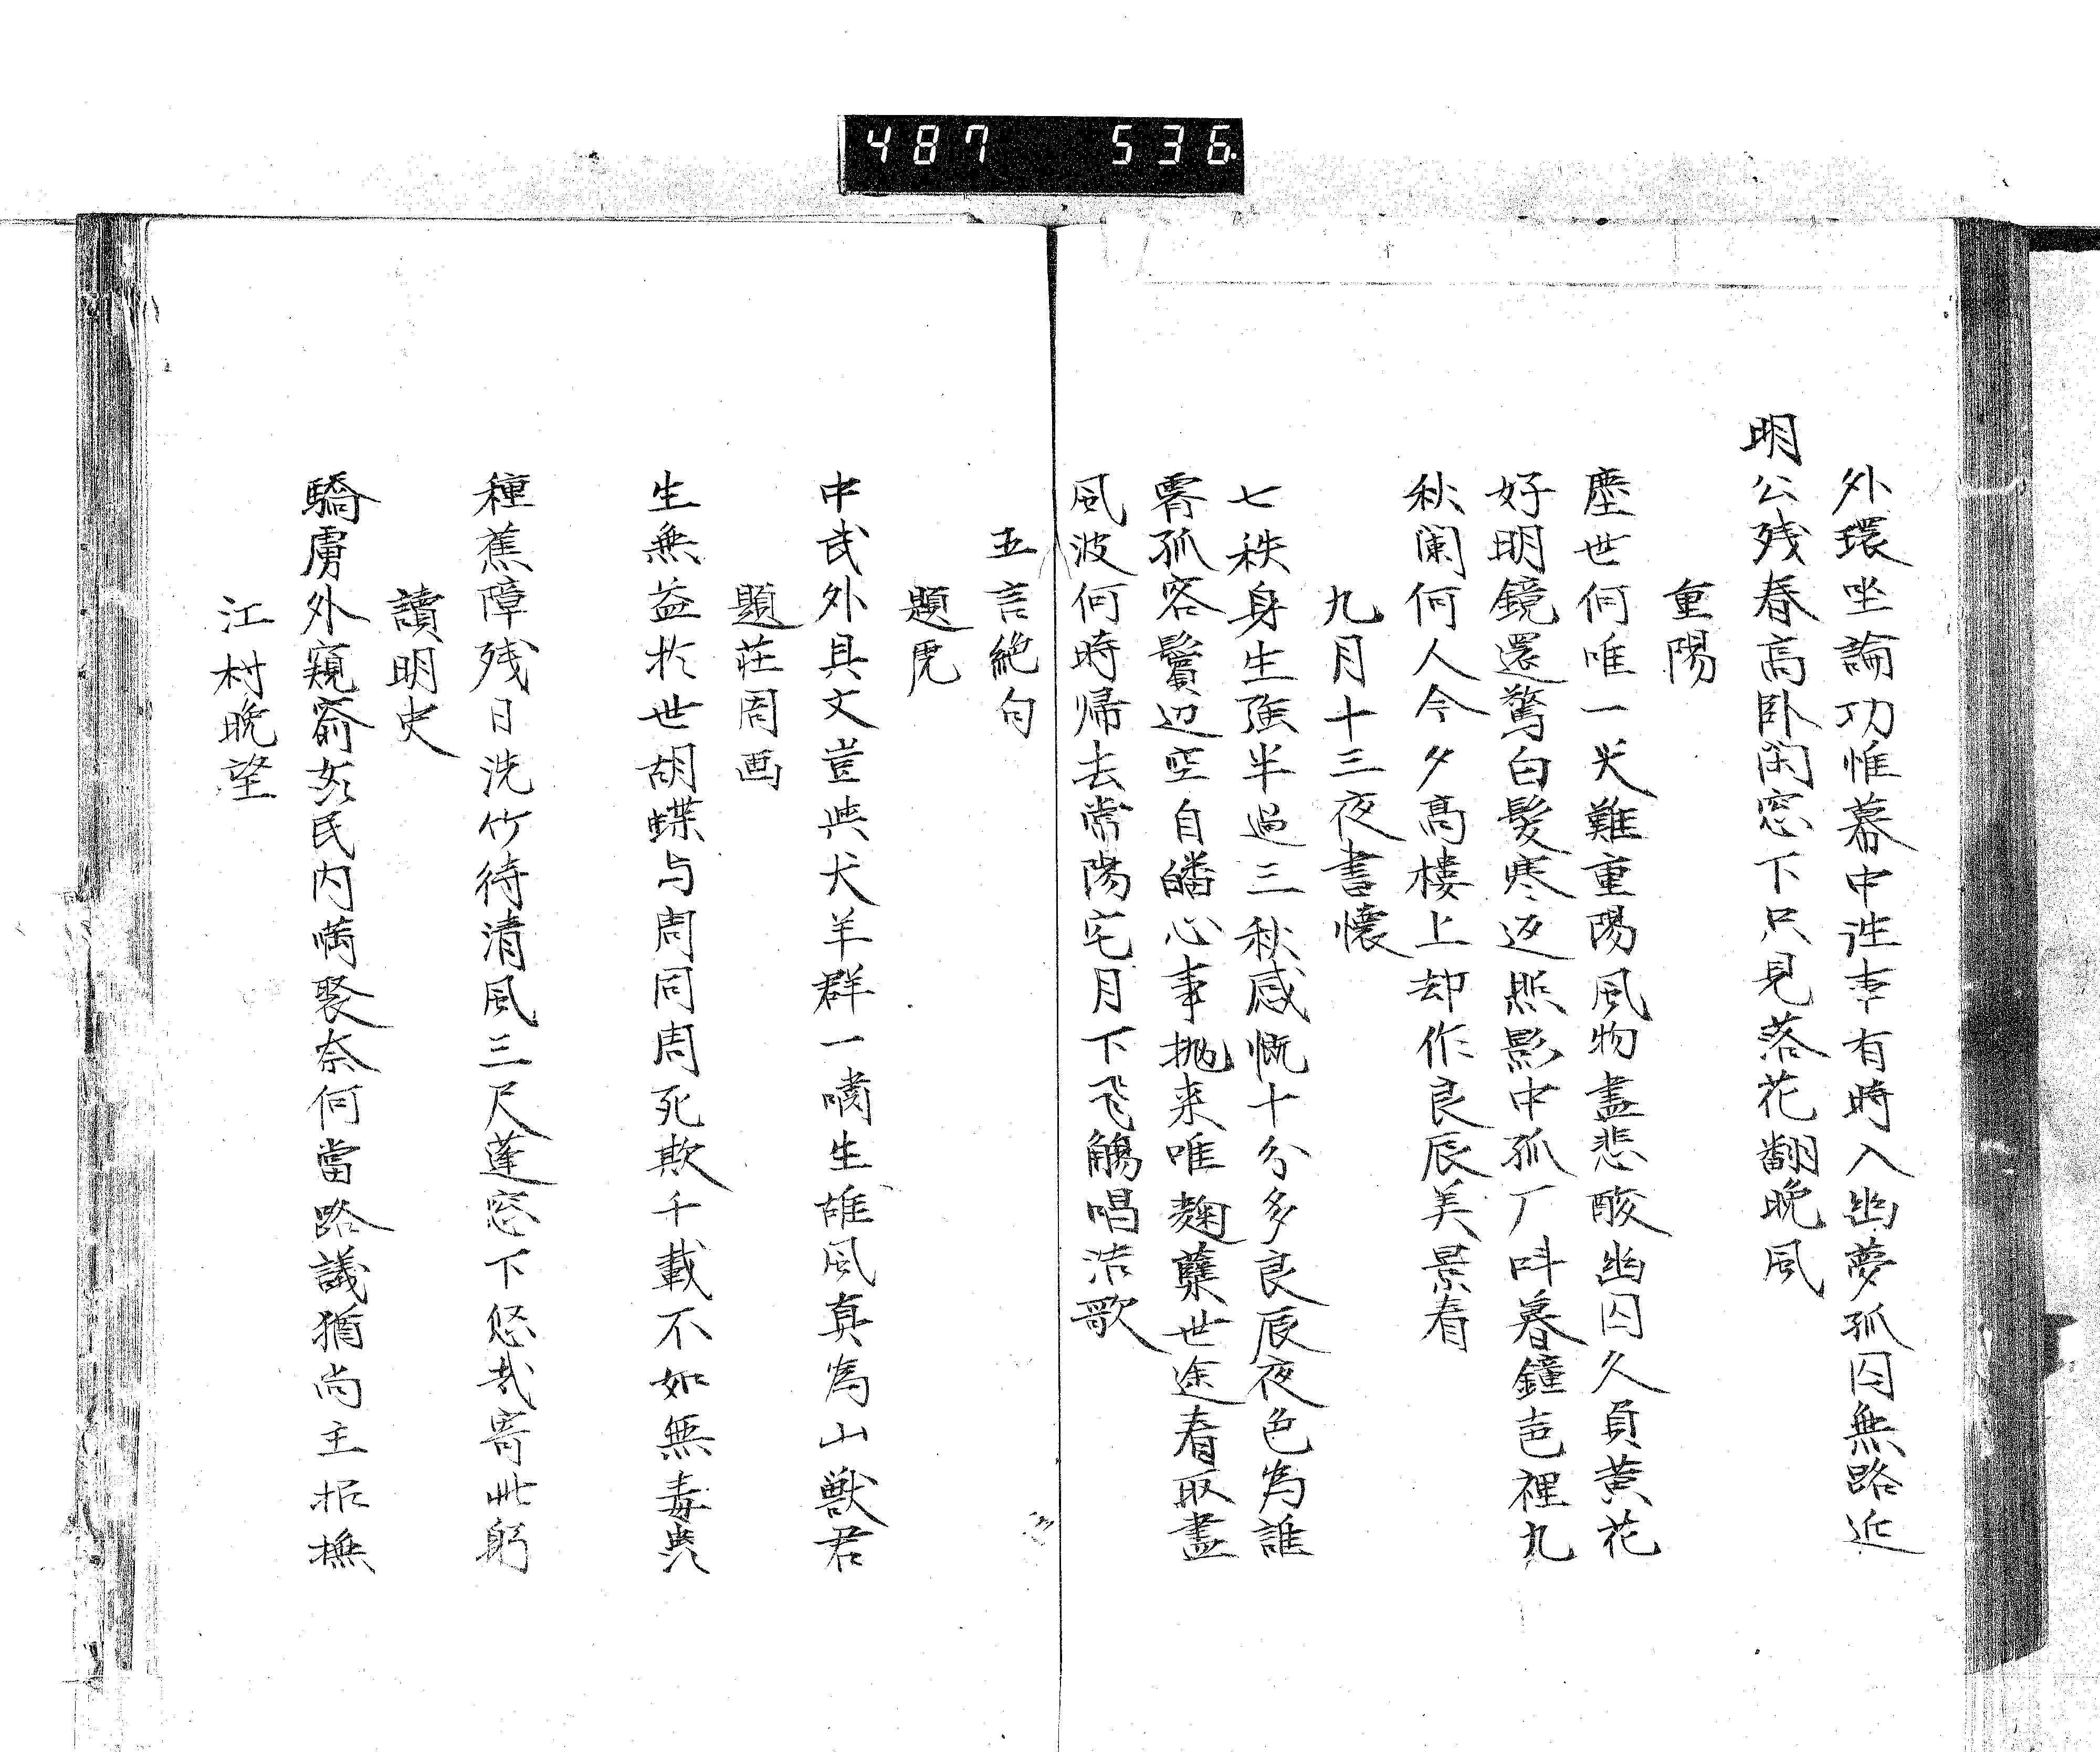 487 536
外環坐論功惟幕中往事有時入幽夢孤囚無路近
明公残春高臥閑窓下只見落花翻晩風
重陽
塵世何唯一笑難重陽風物盡悲酸幽囚久負黄花
好明鏡還驚白髪寒返照影中孤厂叫暮鐘声裡九
秋闌何人今夕高楼上却作良辰美景看
九月十三夜書懐
七秩身生强半過三秋感慨十分多良辰夜色為誰
霽孤客鬢辺空自皤心事抛来唯麹蘖世途看取盡
風波何時帰去常陽宅月下飛觴唱浩歌
五言絶句
題虎
中武外具文豈與犬羊群一嘯生雄風真為山獣君
題荘周画
生無益於世胡蝶与周同周死欺千載不如無毒虫
種蕉障残日洗竹待清風三尺蓬窓下悠哉寄此躬
讀明史
驕虜外窺窬 民内嘯聚奈何當路議猶尚主招撫
江村晩望